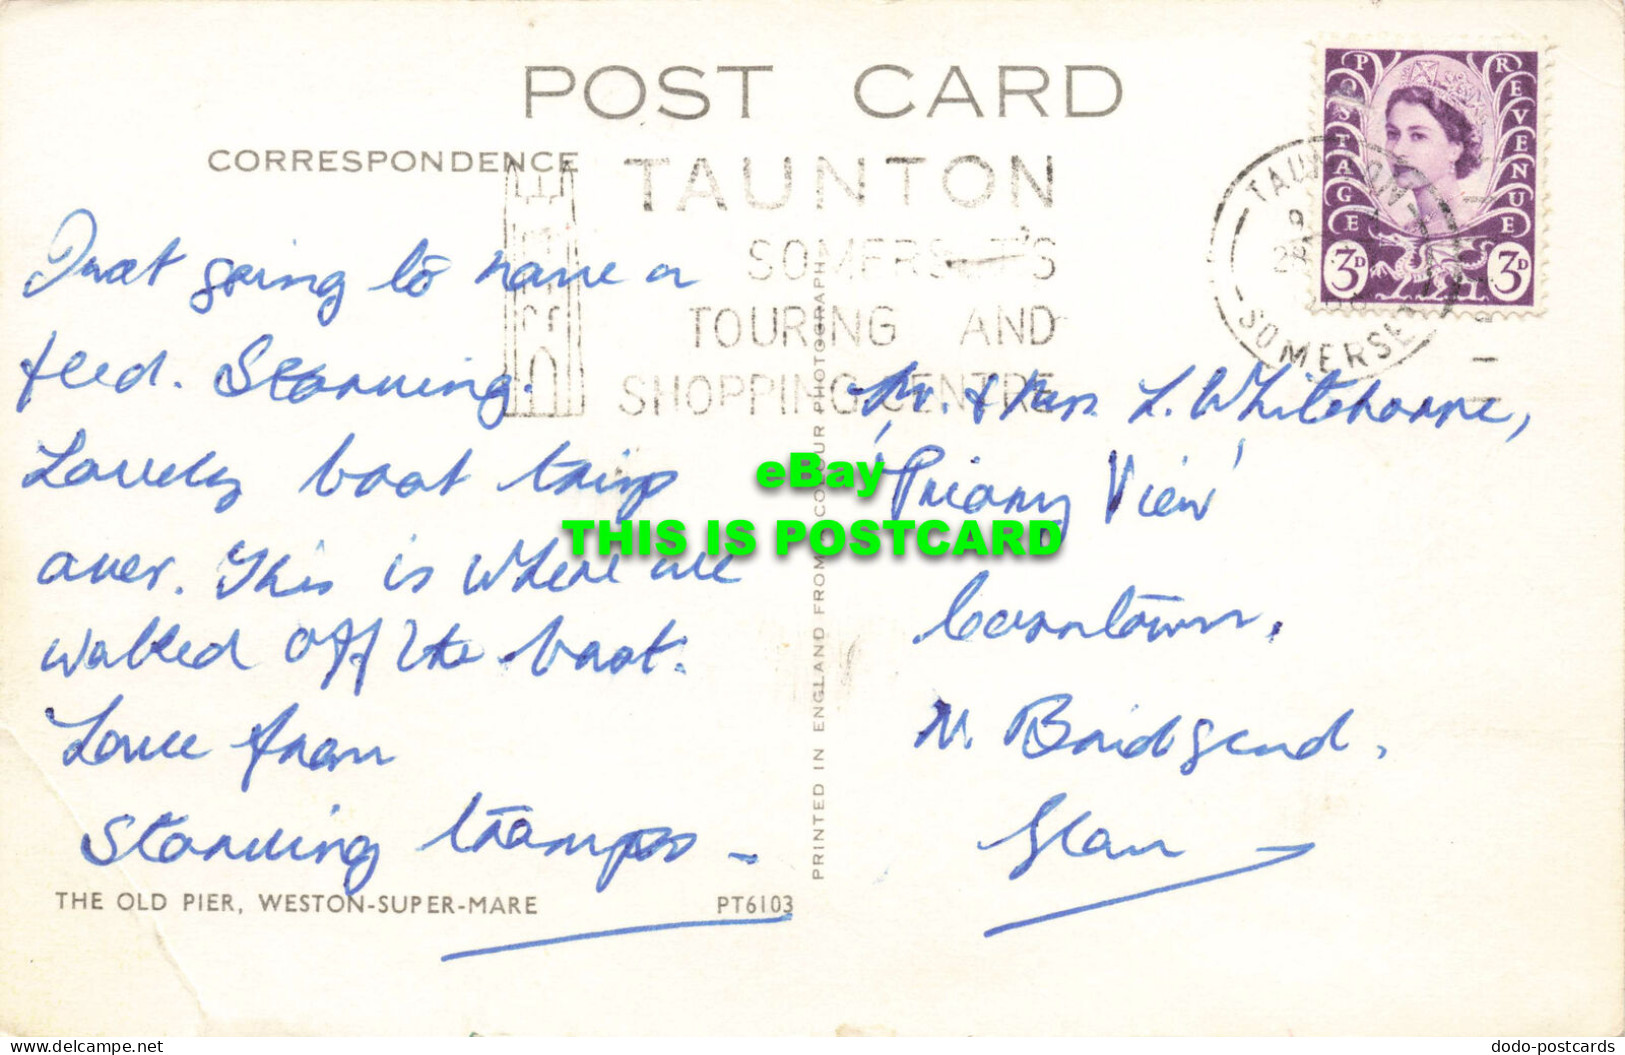 POST CARD
CORRESPONDENCE
TAUNTON
SOMERSET'S
TOURING AND
SHOPPING CENTRE
TAUNTON
SOMERSET
POSTAGE REVENUE
3D 3D
Just going to have a
feed. Starving.
Lovely boat trip
over. This is where we
walked off the boat.
Love from
Starving tramps -
Mr. & Mrs. L. Whitehorne,
'Priory View'
Corntown,
N. Bridgend.
Glam
THE OLD PIER, WESTON-SUPER-MARE
PT6103
PRINTED IN ENGLAND FROM A COLOUR PHOTOGRAPH
eBay
THIS IS POSTCARD
www.delcampe.net
dodo-postcards